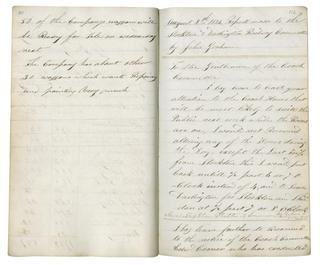 30 of the Companys waggons will
be Ready for Sale on wednesday
next
The Company has about other
30 waggons which wants Repairing
and painting very much
August 8th 1834 Report made to the
Stockton & Darlington Railway Committee
by John Graham
To the Gentlemen of the Coach
Committee
I beg leave to call your
attention to the Coach Hours that
will be most likely to suit the
Public next week while the Races
are on, I would not recommend
altering any of the Hours during
the Day, except the last
from Stockton this I would put
back until ½ past 6 or 7 o
Clock instead of
Darlington for Stockton
½ past 7 or 8 oClock
I beg leave further to recommend
to the notice of the Coach Committee
who has conducted